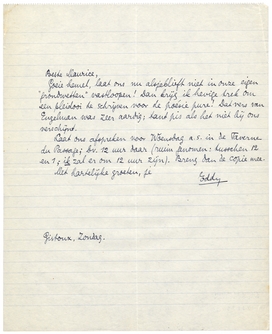 Beste Maurice,
Goeie hemel, laat ons nu alsjeblieft niet in onze eigen
"grondwetten" vastloopen! Dan krijg ik hevige trek om
een pleidooi te schrijven voor de poésie pure! Dat vers van
Engelman was zeer aardig; tant pis als het niet bij ons
verschijnt.
Laat ons afspreken voor Woensdag a.s. in de Taverne
du Passage; bv. 12 uur daar (ruim genomen: tusschen 12
en 1; ik zal er om 12 uur zijn). Breng dan de copie mee.
Met hartelijke groeten, je
Eddy
Gistoux, Zondag.